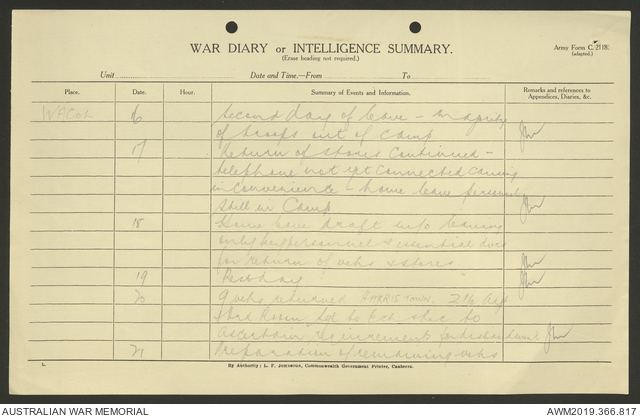 WAR DIARY or INTELLIGENCE SUMMARY.
(Erase heading not required.)
Army Form C. 2118.
(adapted.)
Unit Date and Time.—From To
Place. Date. Hour. Summary of Events and Information. Remarks and references to Appendices, Diaries, &c.
WACOL 16 Second day of leave - majority
of troops out of camp
17 Return of stores continued -
telephone not yet connected causing
inconvenience - home leave personnel
still in Camp
18 Home leave draft leaving
only key personnel & essential
for return of vehs & stores
19 Rest day
20 9 vehs returned HARRISTOWN. 2
to
ascertain requirements for
21 Preparation of remaining vehs
L.
By Authority: L. F. JOHNSTON, Commonwealth Government Printer, Canberra.
AUSTRALIAN WAR MEMORIAL
AWM2019.366.817